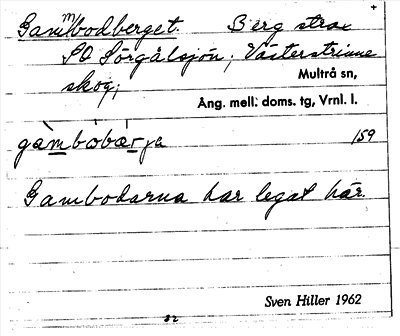 Gammbodberget. Berg strax
SO Sörgålsjön, Västerstrinne
skog;
Multrå sn,
Ång. mell. doms. tg, Vrnl. l.
gàmbòbærja 159
Gambodarna har legat här.
32
Sven Hiller 1962